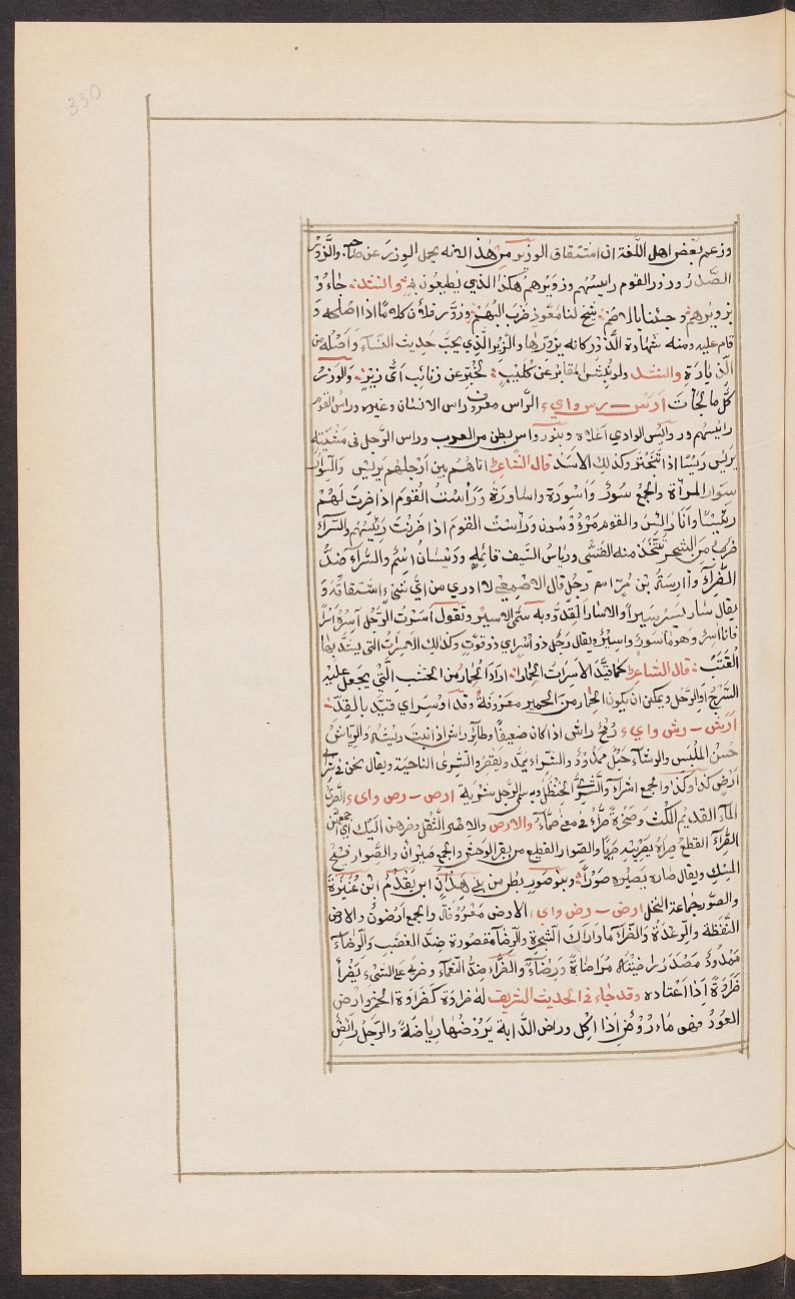 330
وزعم بعض اهل اللّغة ان اشتقاق الوزير من هذا لانه يحمل الوزر عن صاحبه والزَّوْر
الصَّدْر وزور القوم رايسهم وزَوَيْرهم هكذا الذي يطيعون به وانشد جاءوا
بزويرهم وجئنا بالاصم شيخ لنا معوّد ضرب البهم وزوّر فلان كلامًا اذا اصلحه و
قام عليه ومنه شهادة الزور كانه يزوّرها والزير الّذي يحبّ حديث النساء واصله من
الزيارة وانشد ولو نبش المقابر عن كليب تخبّر عن زنائب ايّ زير والوزر
كلّ ما لجأت أرس – رس واي الرّاس معروف راس الانسان وغيره وراس القوم
رايسهم ورايس الوادي اعلاه وبنو رواس بطن من العرب وراس الرّجل في مشيته
يريس ريسًا اذا تبختر وكذلك الاسد قال الشاعر اتاهم بين ارجلهم يريس والسّوار
سوار المراة والجمع سور واسورة واساورة ورأست القوم اذا صرت لهم
رئيسًا وانا رائس والقوم مرؤوسون وراست القوم اذا ضربت رئيسهم والسّراء
ضرب من الشجر تتّخذ منه القسّي ورياس السّيف قائمه وريسان اسم والسّراء ضدّ
الضّراء واراسة بن مرّ اسم رجل قال الاصمعي لا ادري من ايّ شيء اشتقاقه و
يقال سار يسير سيرا والاسار القدّ وبه سمّي الاسير وتقول اسرت الرّجل آسره اسرًا
فانا اسر وهو ماسور واسير ويقال رجل ذو اسر اي ذو قوّت وكذلك الاسرات التي يشدّ بها
القتب قال الشاعر كما قيّد الاسرات الحمارا اراد الحمار من الخشب الّتي يجعل عليه
السّرج او الرّحل ويمكن ان يكون الحمار من الحمير معروفة وقد اوسر اي قيّد بالقدّ
أرش – رش واي رمح راش اذا كان ضعيفًا وطاير راش اذا نبت ريشه والرّياش
حسن الملبس والوشاء حبل ممدود والشّراء يمدّ ويقصر والشّرى الناحية ويقال نحن في شرى
ارض كذا وكذا والجمع اشراء والشّرى الحنظل وبه سمّي الرّجل شرية ارص – رص واي الصّرى
الماء القديم المكث وصخرة صرّاء في معنى صمّاء والارص والاصر الثّقل وصرهنّ اليك اي اجمعهنّ
القراء القطع صراه يصريه صريًا والصوار القطيع من بقر الوحش والجمع صيران والصّوار ريح
المسك ويقال صاره يصيره صورًا وبنو صور بطن من بني هزّان ابن يقدم ابن عنيزة
والصّور جماعة النخل ارض – رض واي الارض معروفة والجمع ارضون والارض
النّفضة والرّعدة والضّراء ما واراك الشجرة والرّضا مقصورة ضدّ الغضب والرّضاء
ممدود مصدر راضيته مراضاة ورضاء والضّراء ضدّ النعماء وضري على الشيء يضرأ
ضراوة اذا اعتاده وقد جاء في الحديث الشريف له ضراوة كضراوة الخمر وارض
العود فهو ماروض اذا اكل وراض الدّابة يروضها رياضة والرّجل رائض